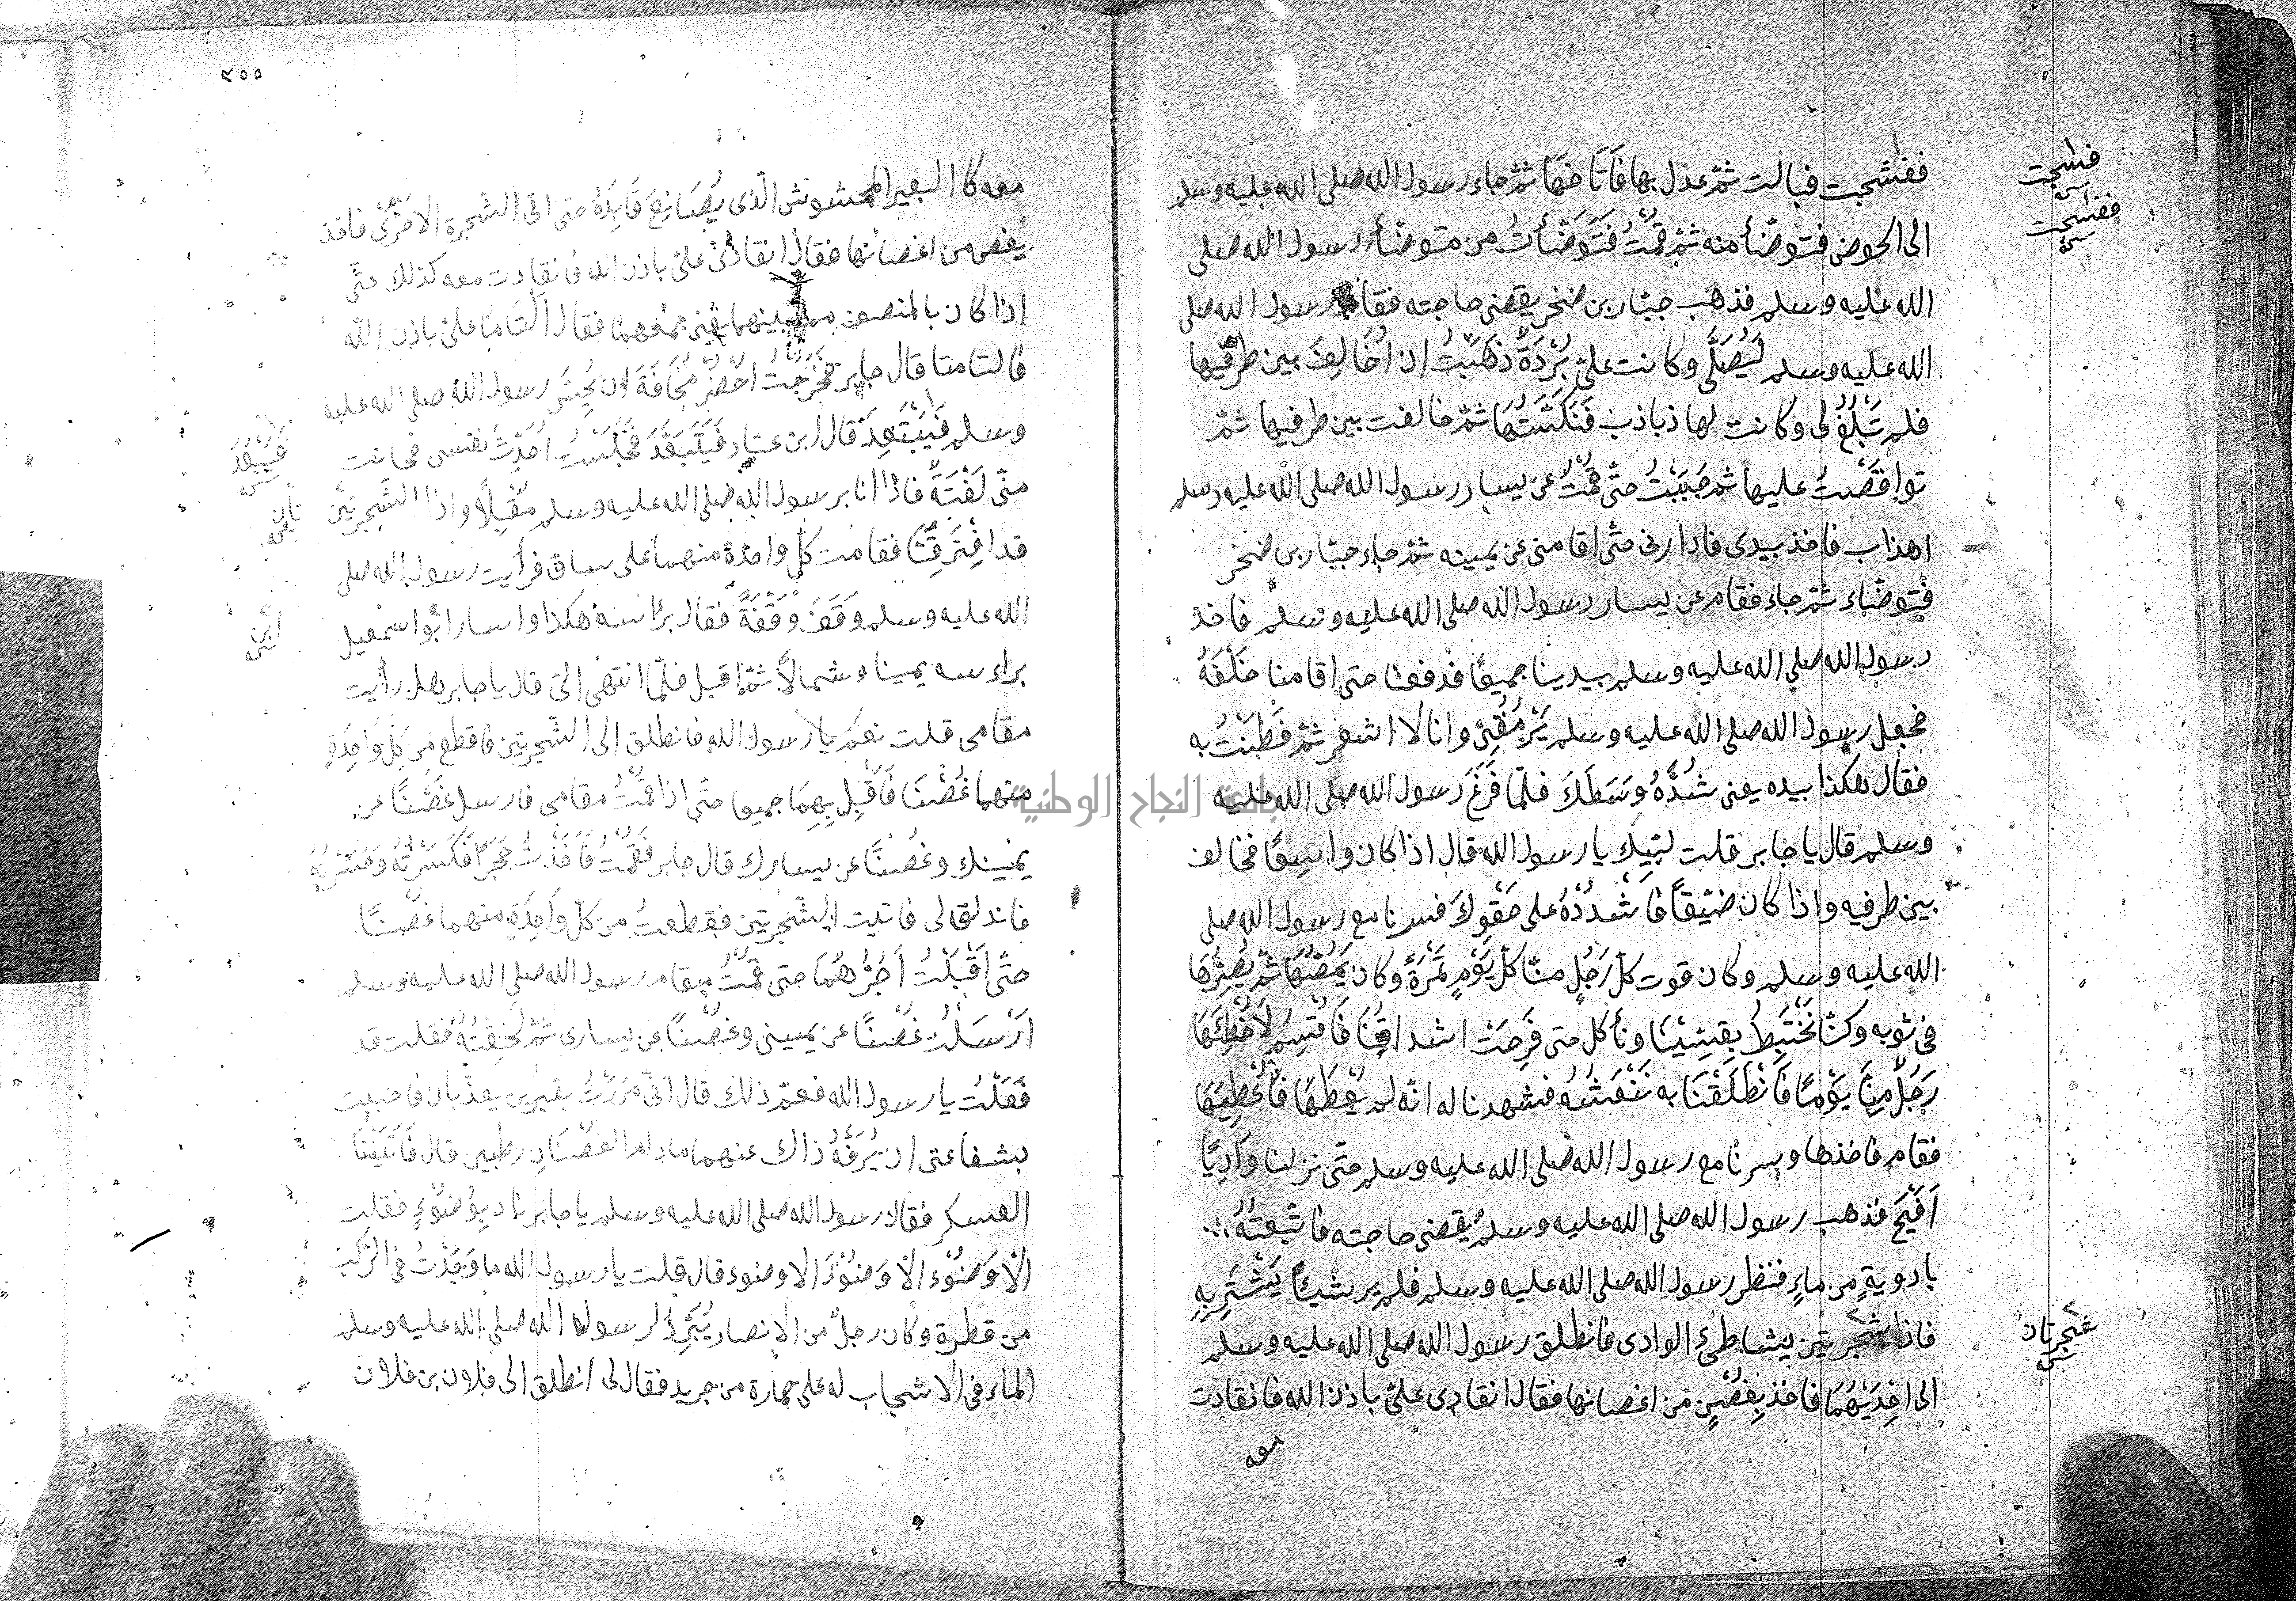 ففشجت فبالت ثم عدل بها فَاَنَاخَهَا ثم جاء رسول الله صلى الله عليه وسلم
الى الحوض فتوضّأ منه ثم قُمْتُ فَتَوَضَّأتُ من متوضّأ رسول الله صلى
الله عليه وسلم فذهب جبّار بن صخر يقضى حاجته فقام رسول الله صلى
الله عليه وسلم لِيُصَلِّى وكانت علىّ بُرْدَةٌ ذَهَبْتُ ان اُخَالِفَ بين طرفيها
فلم تَبْلُغْ لى وكانت لها ذباذب فَنَكَسْتُهَا ثمّ خالفت بين طرفيها ثمّ
تواقَصْتُ عليها ثم جئت حتّى قُمْتُ عن يسار رسول الله صلى الله عليه وسلم
فاخذ بيدى فادارنى حتّى اقامنى عن يمينه ثم جاء جبّار بن صخر
فتوضّاء ثم جاء فقام عن يسار رسول الله صلى الله عليه وسلم فاخذ
رسول الله صلى الله عليه وسلم بيدينا جميعًا فدفعنا حتى اقامنا خَلْفَهُ
فجعل رسول الله صلى الله عليه وسلم يَرْمُقُنِى وانا لا اشعر ثم فَطِنْتُ به
فقال هكذا بيده يعنى شُدَّهُ وَسَطَكَ فلمّا فَرَغَ رسول الله صلى الله عليه
وسلم قال يا جابر قلت لبّيك يا رسول الله قال اذا كان واسِعًا فخالف
بين طرفيه واذا كان ضيّقًا فاشْدُدْهُ على حَقْوِكَ فسرنا مع رسول الله صلى
الله عليه وسلم وكان قوت كلّ رَجُلٍ منّا كلّ يَوْمٍ تَمْرَةً وكان يَمُصُّهَا ثمّ يَصُرُّهَا
فى ثوبه وكنّا نَخْتَبِطُ بقِسِيِّنَا ونأكل حتى قَرِحَتْ اشداقُنَا فَاُقْسِمُ لَاُخْطِئَهَا
رَجُلٌ مِنَّا يَوْمًا فَانْطَلَقْنَا به نَنْعَشُهُ فشهدنا له انّه لم يُعْطَهَا فاُعْطِيَهَا
فقام فاخذها وسرنا مع رسول الله صلى الله عليه وسلم حتّى نزلنا وَادِيًا
اَفْيَحَ فذهب رسول الله صلى الله عليه وسلم يقضى حاجته فاتّبعتُهُ
بادويةٍ من ماءٍ فنظر رسول الله صلى الله عليه وسلم فلم ير شيئًا يَسْتَتِرُ بِهِ
فاذا شجرتين بشاطئ الوادى فانطلق رسول الله صلى الله عليه وسلم
الى اِحْدَيهُمَا فاخذ بِغُصْنٍ من اغصانها فقال انقادى علىّ باذن الله فانقادت
معه
فشجت
ففشجت
شجرتان
٢٥٥
معه كا البعير المخشوش الّذى يُصَانِعُ قَايِدَهُ حتى اتى الشجرة الاخرى فاخذ
بغصن من اغصانها فقال انقادى علىّ باذن الله فانقادت معه كذلك حتّى
اذا كان بالمنصف مما بينهما يعنى جمعهما فقال اِلْتَامَا علىّ باذن الله
فالتامتا قال جابر فخرجتُ اُحْضِرُ مَخَافَةَ ان يُحِسَّ رسول الله صلى الله عليه
وسلم فَيَبْتَعِدَ قال ابن عباد فَيَتَبَعَّدَ فجَلَسْتُ اُحَدِّثُ نفسى فحانت
منّى لَفْتَةٌ فاذا انا برسول الله صلى الله عليه وسلم مُقْبِلًا واذا الشّجرتين
قد افْتَرَقَتَا فقامت كلّ واحدة منهما على ساق فرأيت رسول الله صلى
الله عليه وسلم وَقَفَ وَقْفَةً فقال براسه هكذا واشار ابو اسمعيل
براسه يمينا وشمالًا ثمّ اقبل فلمّا انتهى الىّ قال يا جابر هل رأيت
مقامى قلت نعم يا رسول الله فانطلق الى الشّجرتين فاقطع من كلّ وَاحِدَةٍ
منهما غُصْنًا فَاَقْبِل بِهِمَا جميعا حتّى اذا قُمْتَ مقامى فارسل غُصْنًا عن
يمينك وغُصْنًا عن يسارك قال جابر فَقُمْتُ فَاَخَذْتُ حَجَرًا فَكَسَرْتُهُ وَحَسَرْتُهُ
فاندلق لى فاتيت الشّجرتين فقطعتُ من كلّ وَاحِدَةٍ منهما غُصْنًا
حتّى اَقْبَلْتُ اَجُرُّهُمَا حتى قُمْتُ مقام رسول الله صلى الله عليه وسلم
اَرْسَلْتُ غُصْنًا عن يمينى وغُصْنًا عن يسارى ثمّ لَحِقْتُهُ فقلت قد
فَعَلْتُ يا رسول الله فعمّ ذلك قال انّى مَرَرْتُ بقبرين يعذّبان فاحببت
بشفاعتى ان يُرَفَّهَ ذاك عنهما مادام الغُصْنَانِ رطبين قال فَاَتَيْنَا
العسكر فقال رسول الله صلى الله عليه وسلم يا جابر ناد بِوُضُوْءٍ فقلت
اَلَا وَضُوْء اَلَا وَضُوْءَ الا وضوء قال قلت يا رسول الله ما وَجَدْتُ فى الركب
من قطرة وكان رجلٌ من الانصار يُبَرِّدُ لرسول الله صلى الله عليه وسلم
الماء فى الاشجاب له على حمارة من جريد فقال لى انطلق الى فلان بن فلان
فيبتعد
تان
ابن
جامعة النجاح الوطنية